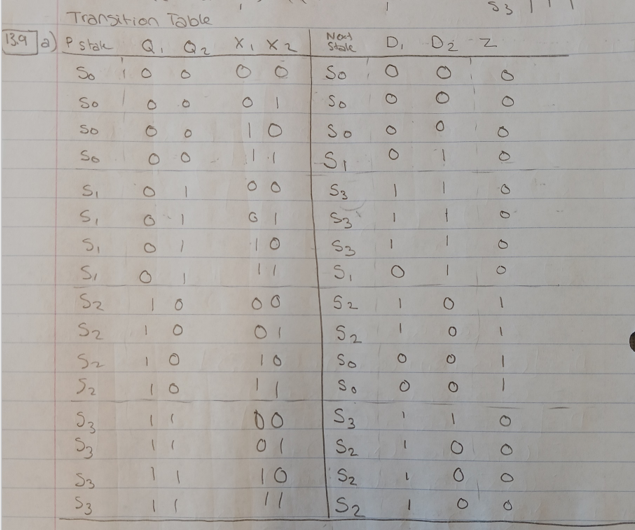 S3 | 1 1
Transition Table
13.9 a) P State Q1 Q2 X1 X2 Next State D1 D2 Z
S0 0 0 0 0 S0 0 0 0
S0 0 0 0 1 S0 0 0 0
S0 0 0 1 0 S0 0 0 0
S0 0 0 1 1 S1 0 1 0
S1 0 1 0 0 S3 1 1 0
S1 0 1 0 1 S3 1 1 0
S1 0 1 1 0 S3 1 1 0
S1 0 1 1 1 S1 0 1 0
S2 1 0 0 0 S2 1 0 1
S2 1 0 0 1 S2 1 0 1
S2 1 0 1 0 S0 0 0 1
S2 1 0 1 1 S0 0 0 1
S3 1 1 0 0 S3 1 1 0
S3 1 1 0 1 S2 1 0 0
S3 1 1 1 0 S2 1 0 0
S3 1 1 1 1 S2 1 0 0